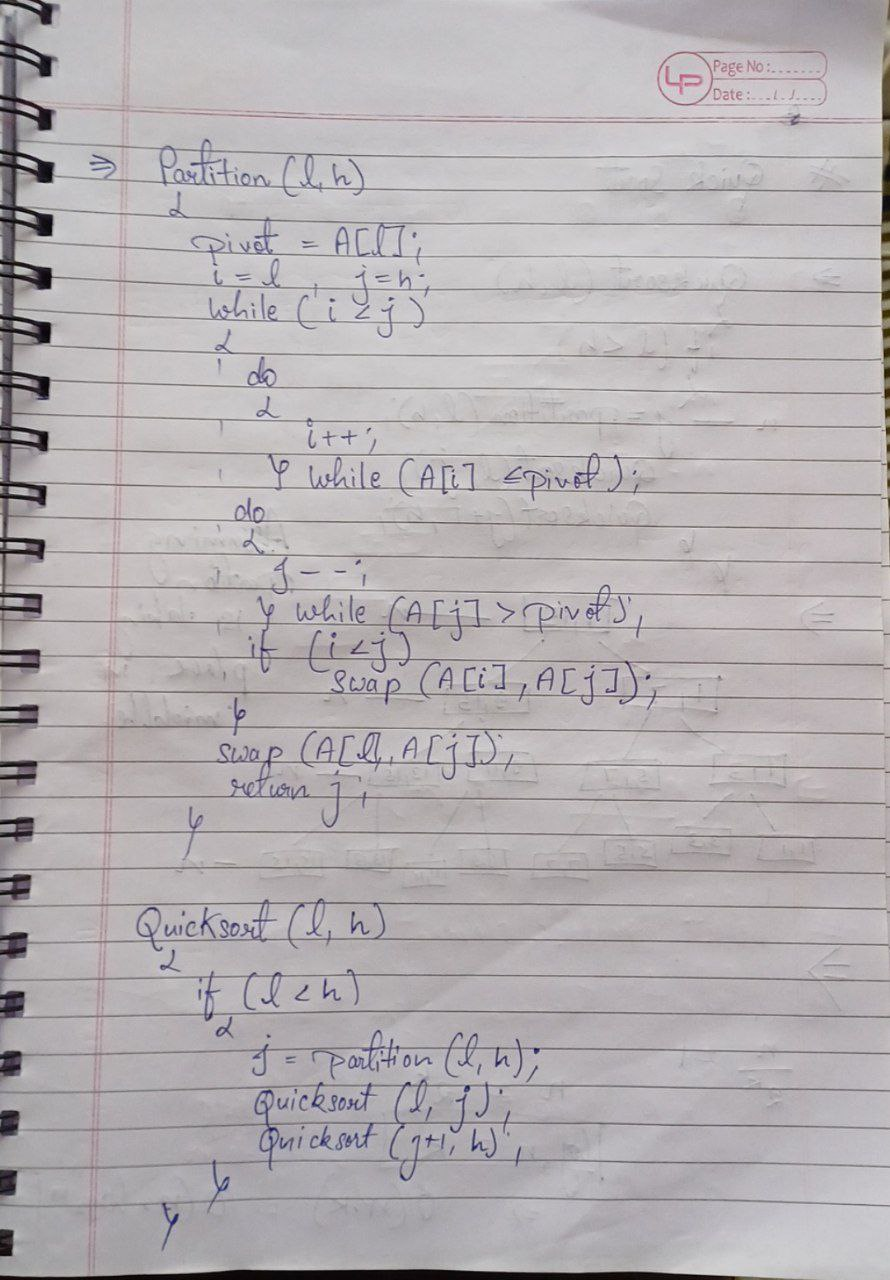 LP Page No:.......
Date:...../...../.....
⇒ Partition (l, h)
{
pivot = A[l];
i = l , j = h;
while (i < j)
{
do
{
i++;
} while (A[i] ≤ pivot);
do
{
j--;
} while (A[j] > pivot);
if (i < j)
swap (A[i], A[j]);
}
swap (A[l], A[j]);
return j;
}
Quicksort (l, h)
{
if (l < h)
{
j = partition (l, h);
Quicksort (l, j);
Quicksort (j+1, h);
}
}